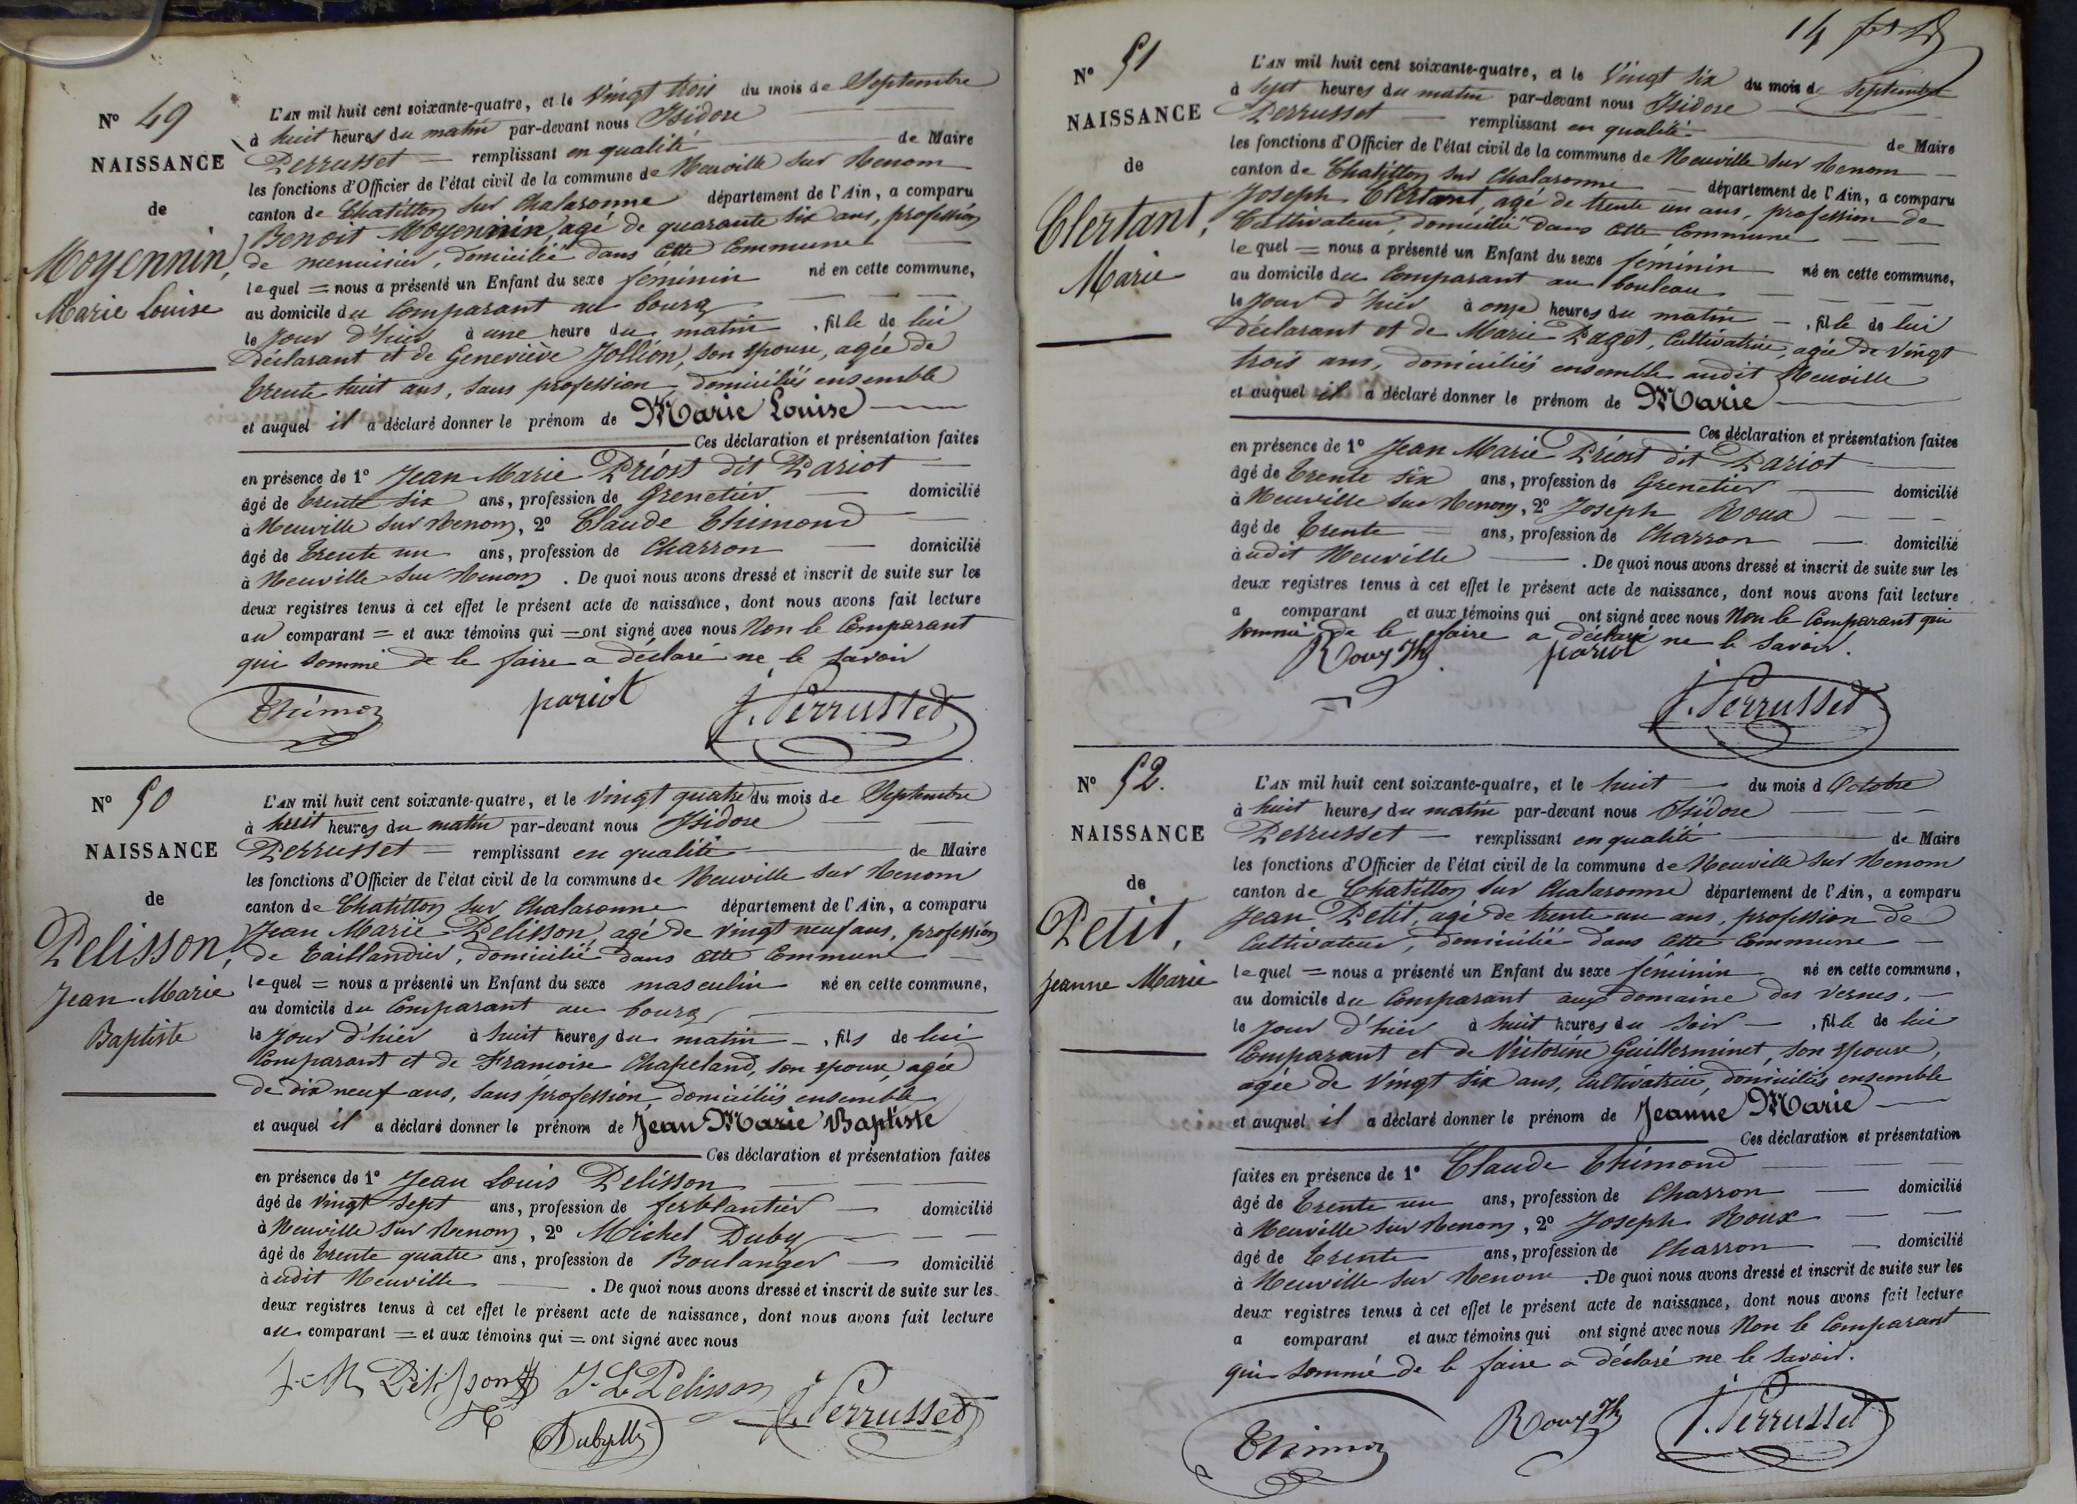 N° 49
NAISSANCE
de
Moyennin,
Marie Louise
L'AN mil huit cent soixante-quatre, et le vingt trois du mois de Septembre
à huit heures du matin par-devant nous Isidore
Perrusset remplissant en qualité de Maire
les fonctions d'Officier de l'état civil de la commune de Neuville sur Renom
canton de Chatillon sur Chalaronne département de l'Ain, a comparu
Benoit Moyennin, agé de quarante six ans, profession
de menuisier, domicilié dans cette Commune
lequel = nous a présenté un Enfant du sexe feminin né en cette commune,
au domicile du Comparant au bourg
le jour d'hier à une heure du matin, fille de lui
déclarant et de Geneviève Jollion, son épouse, agée de
trente huit ans, sans profession, domiciliés ensemble
et auquel il a déclaré donner le prénom de Marie Louise
Ces déclaration et présentation faites
en présence de 1° Jean Marie Préost dit Pariot
âgé de trente six ans, profession de Grenetier domicilié
à Neuville sur Renom, 2° Claude Thimond
âgé de trente un ans, profession de Charron domicilié
à Neuville sur Renom. De quoi nous avons dressé et inscrit de suite sur les
deux registres tenus à cet effet le présent acte de naissance, dont nous avons fait lecture
au comparant = et aux témoins qui = ont signé avec nous Non le Comparant
qui sommé de le faire a déclaré ne le savoir
Thimon pariot J. Perrusset
N° 50
NAISSANCE
de
Pelisson,
Jean Marie
Baptiste
L'AN mil huit cent soixante-quatre, et le vingt quatre du mois de Septembre
à huit heures du matin par-devant nous Isidore
Perrusset = remplissant en qualité de Maire
les fonctions d'Officier de l'état civil de la commune de Neuville sur Renom
canton de Chatillon sur Chalaronne département de l'Ain, a comparu
Jean Marie Pelisson, agé de vingt neuf ans, profession
de Taillandier, domicilié dans cette Commune
lequel = nous a présenté un Enfant du sexe masculin né en cette commune,
au domicile du Comparant au bourg
le jour d'hier à huit heures du matin, fils de lui
Comparant et de Francoise Chapeland, son épouse, agée
de dix neuf ans, sans profession, domiciliés ensemble
et auquel il a déclaré donner le prénom de Jean Marie Baptiste
Ces déclaration et présentation faites
en présence de 1° Jean Louis Pelisson
âgé de vingt sept ans, profession de ferblantier domicilié
à Neuville sur Renom, 2° Michel Duby
âgé de trente quatre ans, profession de Boulanger domicilié
à udit Neuville. De quoi nous avons dressé et inscrit de suite sur les
deux registres tenus à cet effet le présent acte de naissance, dont nous avons fait lecture
au comparant = et aux témoins qui = ont signé avec nous
J-M Pelisson J-L Pelisson J. Perrusset
Duby
14
N° 51
NAISSANCE
de
Clertant,
Marie
L'AN mil huit cent soixante-quatre, et le vingt six du mois de Septembre
à sept heures du matin par-devant nous Isidore
Perrusset remplissant en qualité de Maire
les fonctions d'Officier de l'état civil de la commune de Neuville sur Renom
canton de Chatillon sur Chalaronne département de l'Ain, a comparu
Joseph Clertant, agé de trente un ans, profession de
Cultivateur, domicilié dans cette Commune
lequel = nous a présenté un Enfant du sexe féminin né en cette commune,
au domicile du Comparant au bouleau
le jour d'hier à onze heures du matin, fille de lui
déclarant et de Marie Paget, Cultivatrice, agée de vingt
trois ans, domiciliés ensemble audit Neuville
et auquel il a déclaré donner le prénom de Marie
Ces déclaration et présentation faites
en présence de 1° Jean Marie Préost dit Pariot
âgé de trente six ans, profession de Grenetier domicilié
à Neuville sur Renom, 2° Joseph Roux
âgé de trente ans, profession de Charron domicilié
à udit Neuville. De quoi nous avons dressé et inscrit de suite sur les
deux registres tenus à cet effet le présent acte de naissance, dont nous avons fait lecture
a comparant et aux témoins qui ont signé avec nous Non le Comparant qui
sommé de le faire a déclaré ne le savoir.
Roux Jh pariot
J. Perrusset
N° 52.
NAISSANCE
de
Petit,
Jeanne Marie
L'AN mil huit cent soixante-quatre, et le huit du mois d Octobre
à huit heures du matin par-devant nous Isidore
Perrusset remplissant en qualité de Maire
les fonctions d'Officier de l'état civil de la commune de Neuville sur Renom
canton de Chatillon sur Chalaronne département de l'Ain, a comparu
Jean Petit, agé de trente un ans, profession de
Cultivateur, domicilié dans cette Commune
lequel = nous a présenté un Enfant du sexe féminin né en cette commune,
au domicile du Comparant aux domaine des vernes.
le jour d'hier à huit heures du soir, fille de lui
Comparant et de Victorine Guillerminet, son épouse,
agée de vingt six ans, Cultivatrice, domiciliés ensemble
et auquel il a déclaré donner le prénom de Jeanne Marie
Ces déclaration et présentation
faites en présence de 1° Claude Thimond
âgé de trente un ans, profession de Charron domicilié
à Neuville sur Renom, 2° Joseph Roux
âgé de trente ans, profession de Charron domicilié
à Neuville sur Renom. De quoi nous avons dressé et inscrit de suite sur les
deux registres tenus à cet effet le présent acte de naissance, dont nous avons fait lecture
a comparant et aux témoins qui ont signé avec nous Non le Comparant
qui sommé de le faire a déclaré ne le savoir.
Thimon Roux Jh J. Perrusset